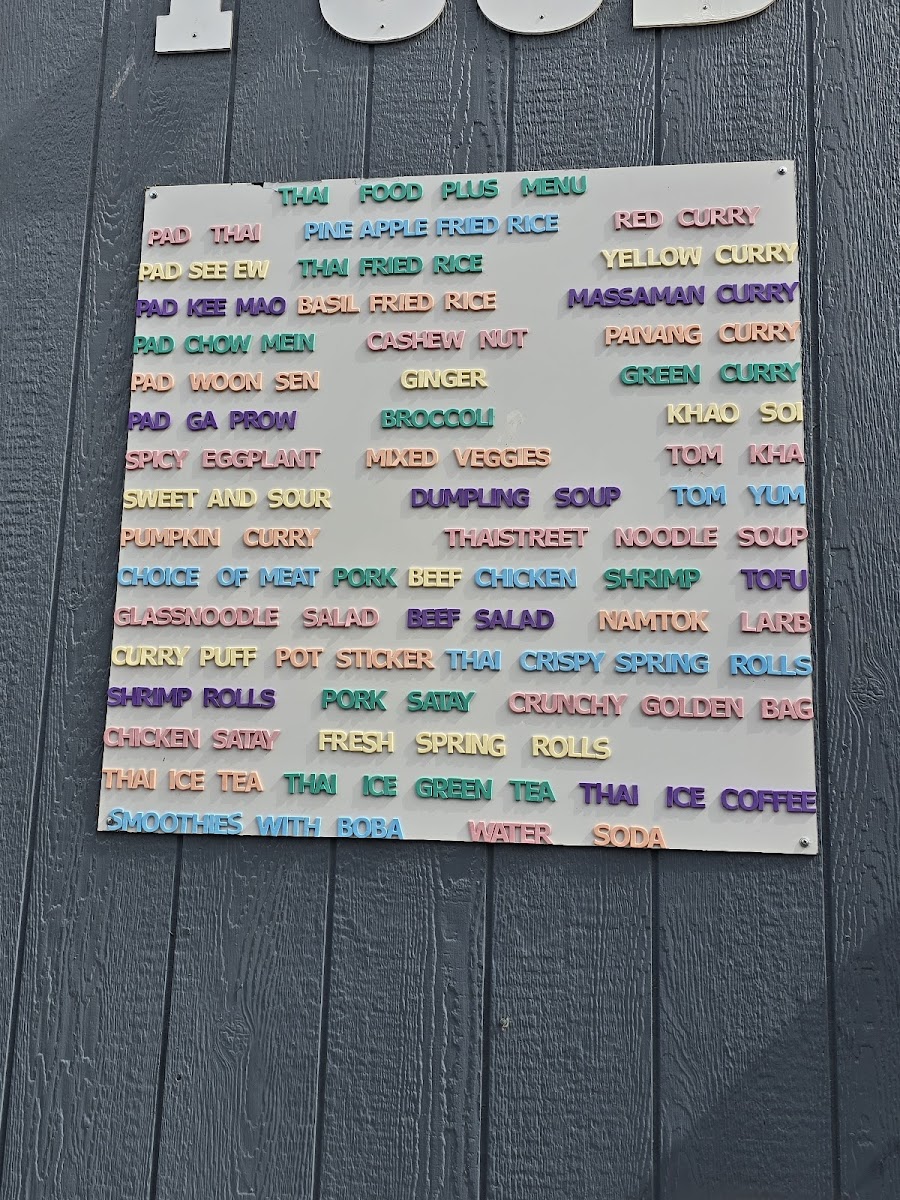 THAI FOOD PLUS MENU
PAD THAI PINE APPLE FRIED RICE RED CURRY
PAD SEE EW THAI FRIED RICE YELLOW CURRY
PAD KEE MAO BASIL FRIED RICE MASSAMAN CURRY
PAD CHOW MEIN CASHEW NUT PANANG CURRY
PAD WOON SEN GINGER GREEN CURRY
PAD GA PROW BROCCOLI KHAO SOI
SPICY EGGPLANT MIXED VEGGIES TOM KHA
SWEET AND SOUR DUMPLING SOUP TOM YUM
PUMPKIN CURRY THAISTREET NOODLE SOUP
CHOICE OF MEAT PORK BEEF CHICKEN SHRIMP TOFU
GLASSNOODLE SALAD BEEF SALAD NAMTOK LARB
CURRY PUFF POT STICKER THAI CRISPY SPRING ROLLS
SHRIMP ROLLS PORK SATAY CRUNCHY GOLDEN BAG
CHICKEN SATAY FRESH SPRING ROLLS
THAI ICE TEA THAI ICE GREEN TEA THAI ICE COFFEE
SMOOTHIES WITH BOBA WATER SODA